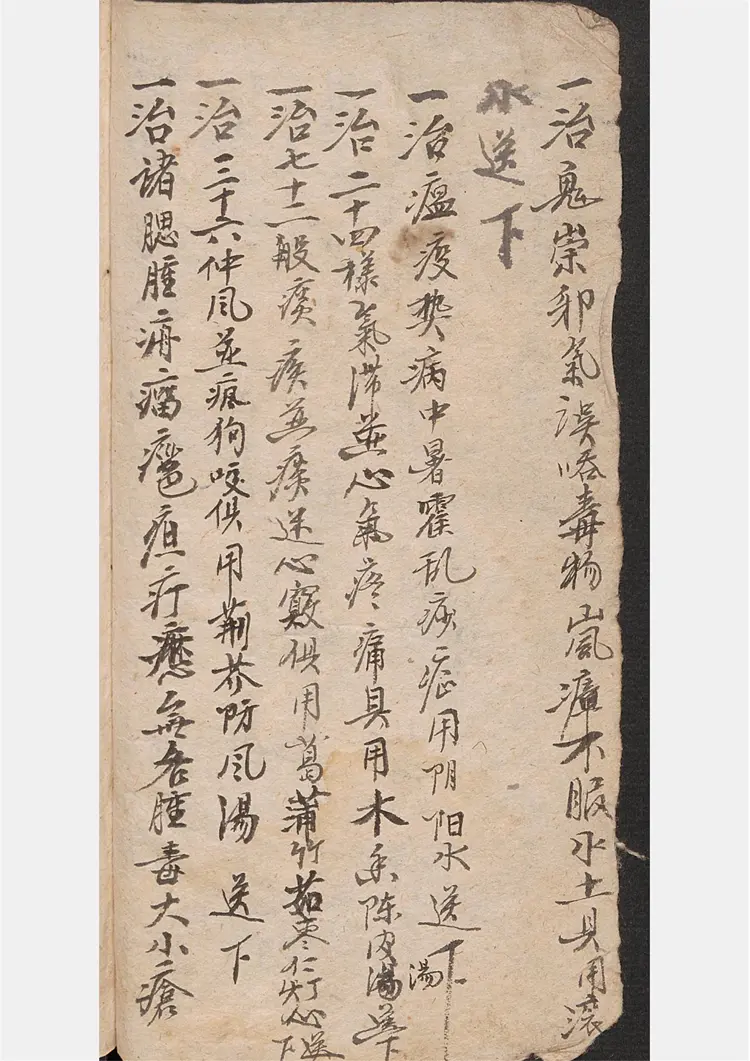 一治鬼祟邪氣誤啗毒物嵐瘴不服水土具用滾
水送下
一治瘟疫獘病中暑霍乱痧症用阴阳水送下
湯
一治二十四樣氣滞並心氣疼痛具用木香陈皮湯送下
一治七十二般痰疾並痰迷心竅俱用葛蒲竹茹枣仁灯心送下
一治三十六仲风並疯狗咬俱用荆芥防风湯送下
一治諸腮腫 瘤 疽疔 無名腫毒大小瘡